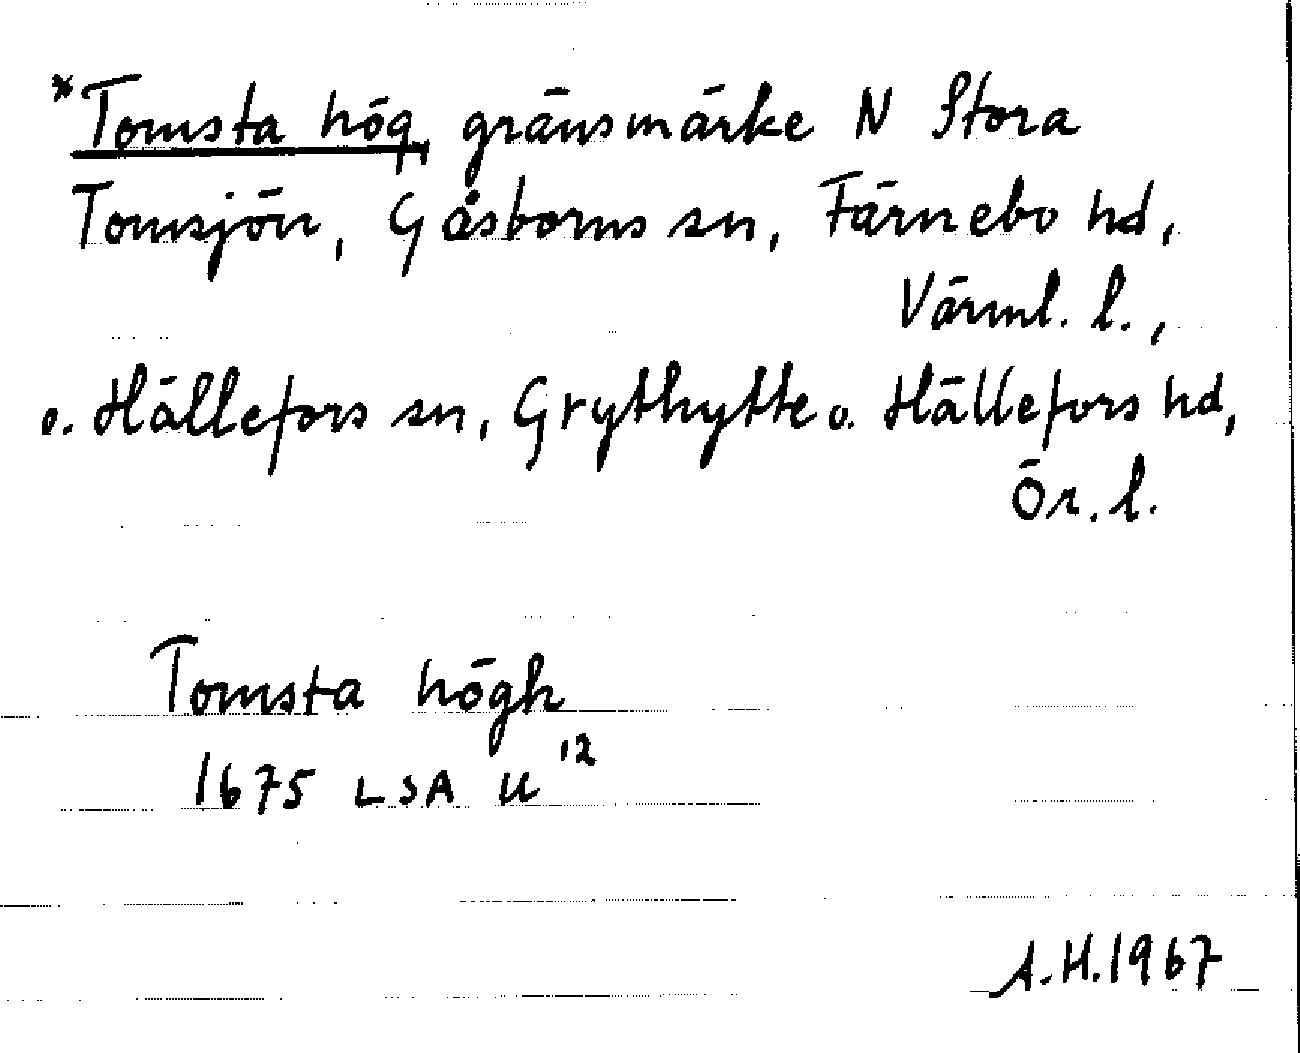 *Tomsta hög, gränsmärke N Stora
Tomsjön, Gåsborns sn, Färnebo hd,
Värml. l.,
o. Hällefors sn, Grythytte o. Hällefors hd,
Ör. l.
Tomsta högh
1675 LSA U 12
A.H. 1967